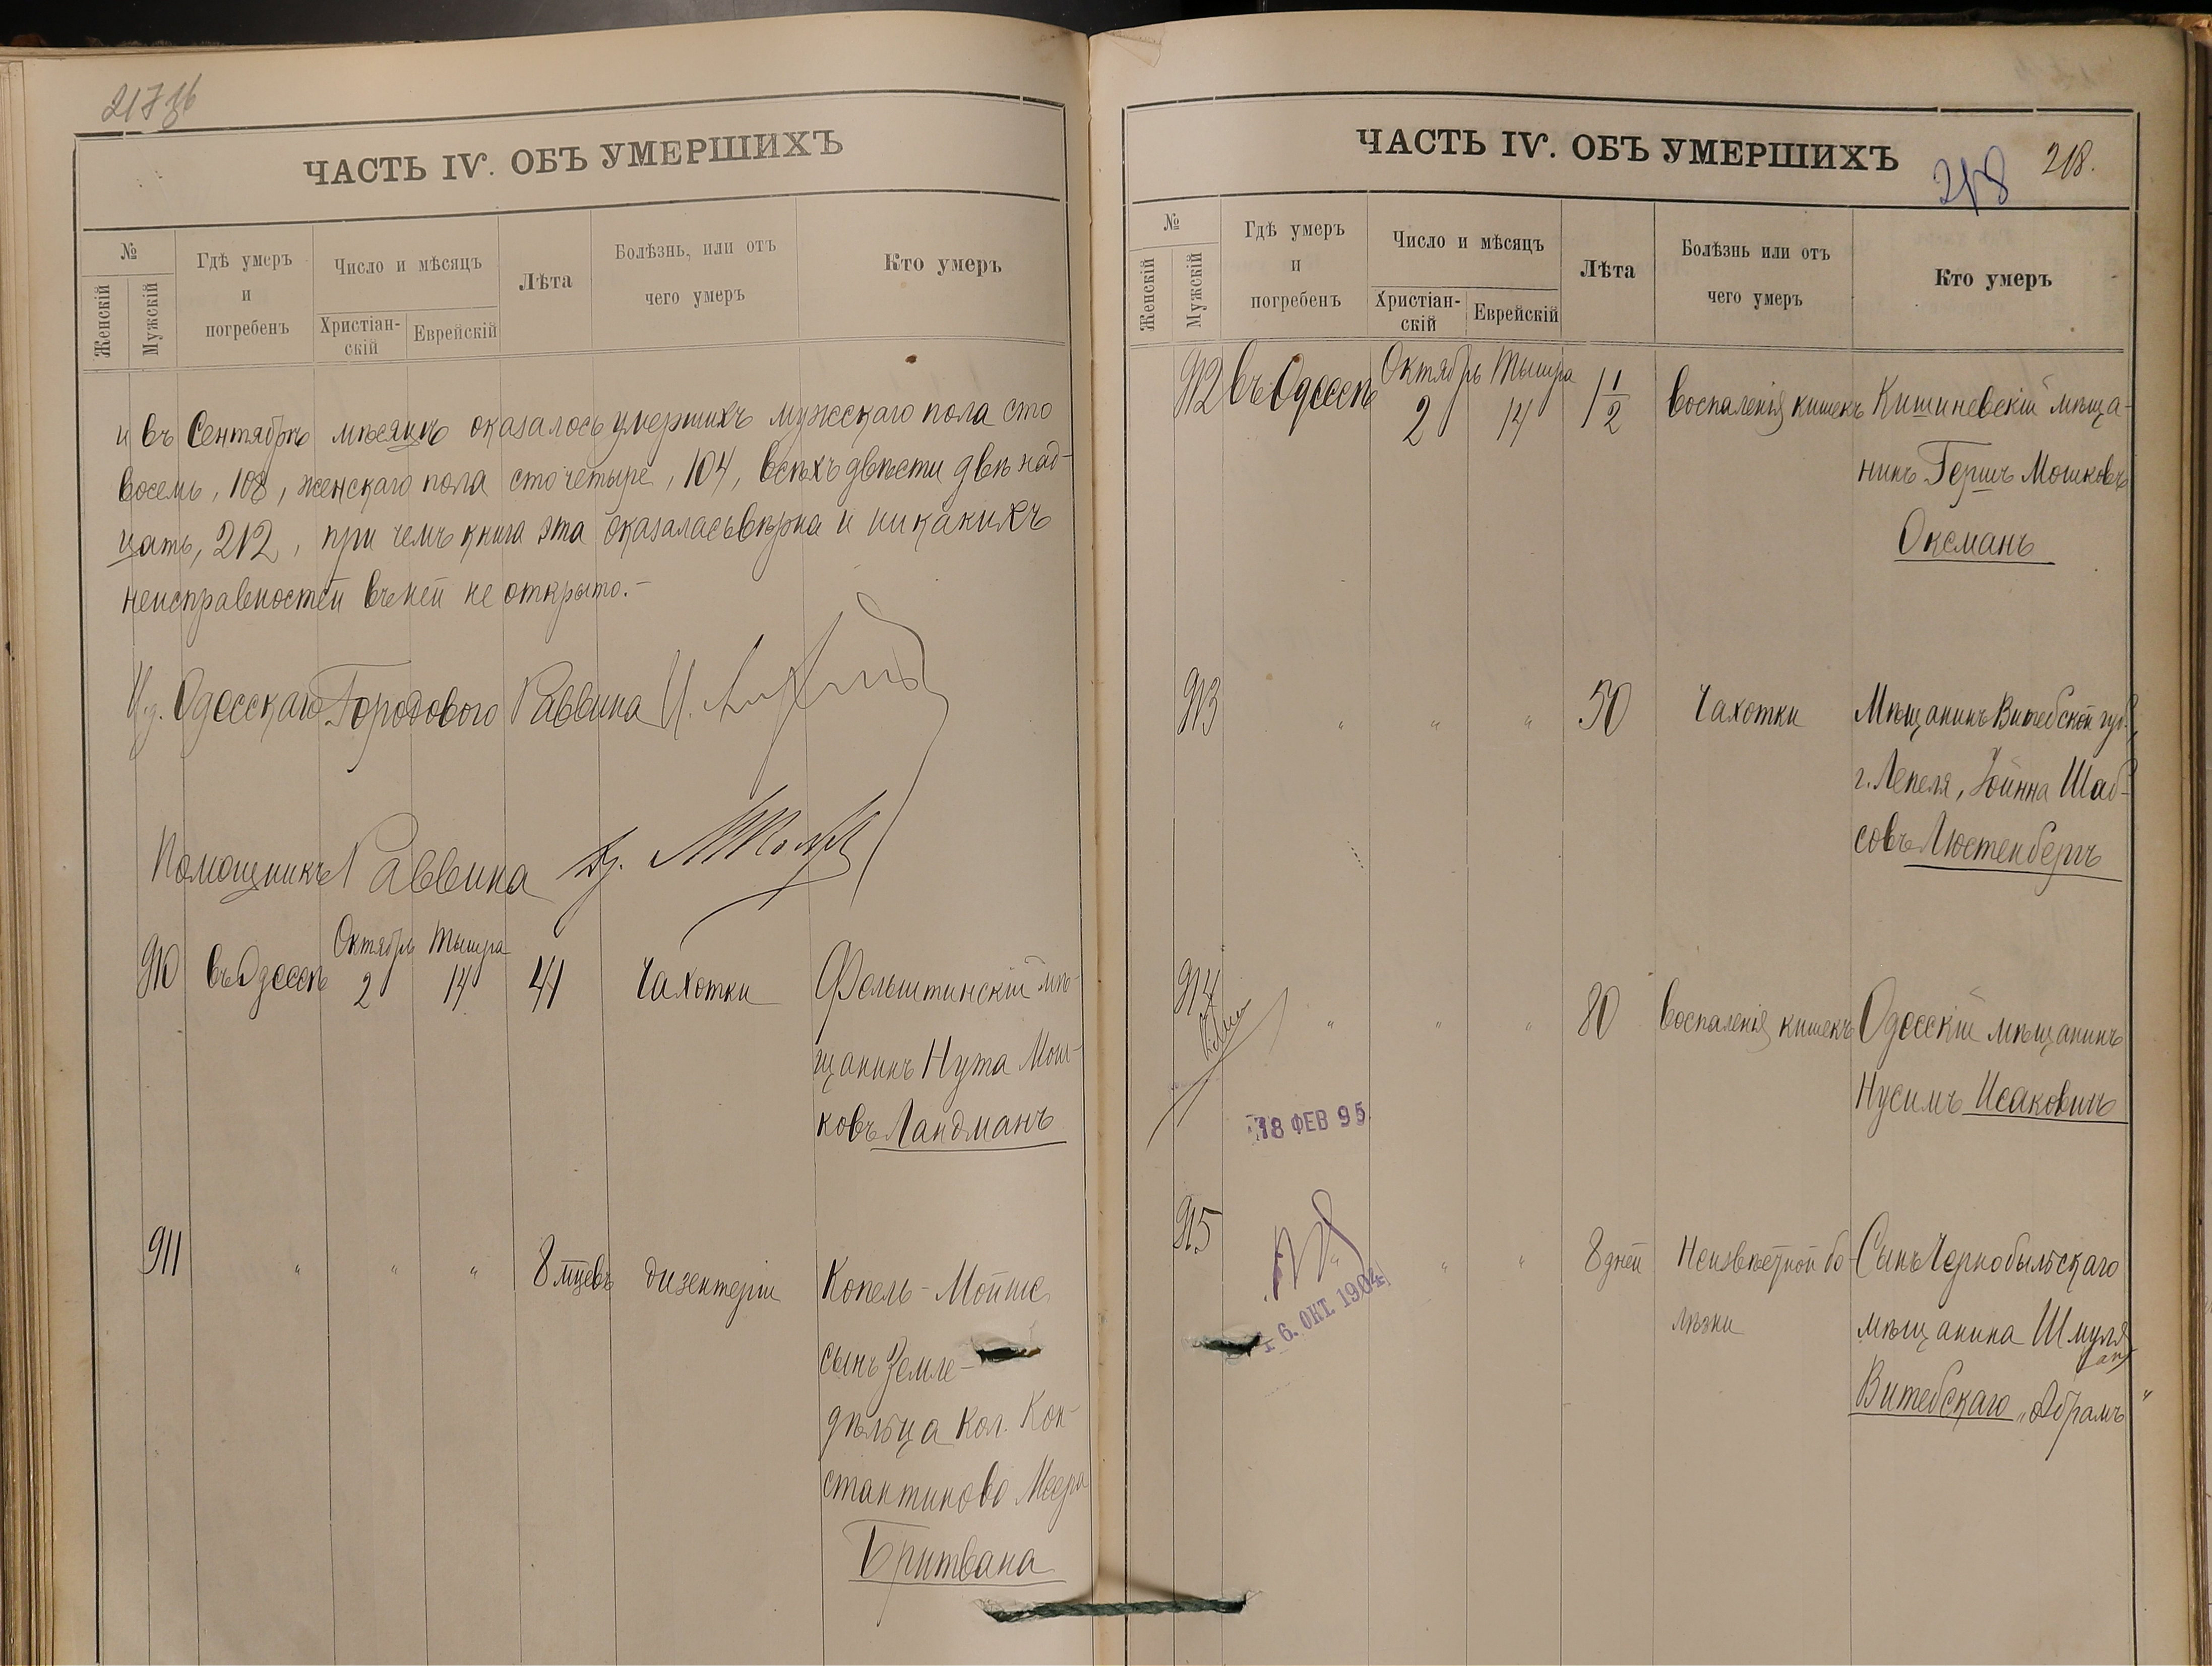 217 об
ЧАСТЬ IV. ОБЪ УМЕРШИХЪ
№
Женскій
Мужскій
Гдѣ умеръ
и
погребенъ
Число и мѣсяцъ
Христіан-
скій
Еврейскій
Лѣта
Болѣзнь, или отъ
чего умеръ
Кто умеръ
и въ Сентябрѣ мѣсяцѣ оказалось умершихъ мужескаго пола сто
восемь, 108, женскаго пола сто четыре, 104, всѣхъ двѣсти двѣнад-
цать, 212, при чемъ книга эта оказалась вѣрна и никакихъ
неисправностей въ ней не открыто.-
И.д. Одесскаго Городового Раввина
Помощникъ Раввина
910 въ Одессѣ Октябрь 2 Тышра 14 41 Чахотки Фельштинскій мѣ-
щанинъ Нута Мош-
ковъ Ландманъ
911 " " " 8 мцевъ дизентеріи Копель-Мойше
сынъ Земле-
дѣльца Кол. Кон-
стантиново Меера
Бритвана
ЧАСТЬ IV. ОБЪ УМЕРШИХЪ
218 218.
№
Женскій
Мужскій
Гдѣ умеръ
и
погребенъ
Число и мѣсяцъ
Христіан-
скій
Еврейскій
Лѣта
Болѣзнь или отъ
чего умеръ
Кто умеръ
912 въ Одессѣ Октябрь 2 Тышра 14 1 1/2 воспаленія кишекъ Кишиневскій мѣща-
нинъ Гершъ Мошковъ
Оксманъ
913 " " " 50 Чахотки Мѣщанинъ Витебской губ.,
г. Лепеля, Іойнна Шаб-
совъ Люстенбергъ
914 " " " 80 воспаленія кишекъ Одесскій мѣщанинъ
Нусимъ Исаковичъ
18 ФЕВ 95
915 " " " 8 дней Неизвѣстной бо- Сынъ Чернобыльскаго
лѣзни мѣщанина Шмуля
Витебскаго „Абрамъ"
6. ОКТ. 1904